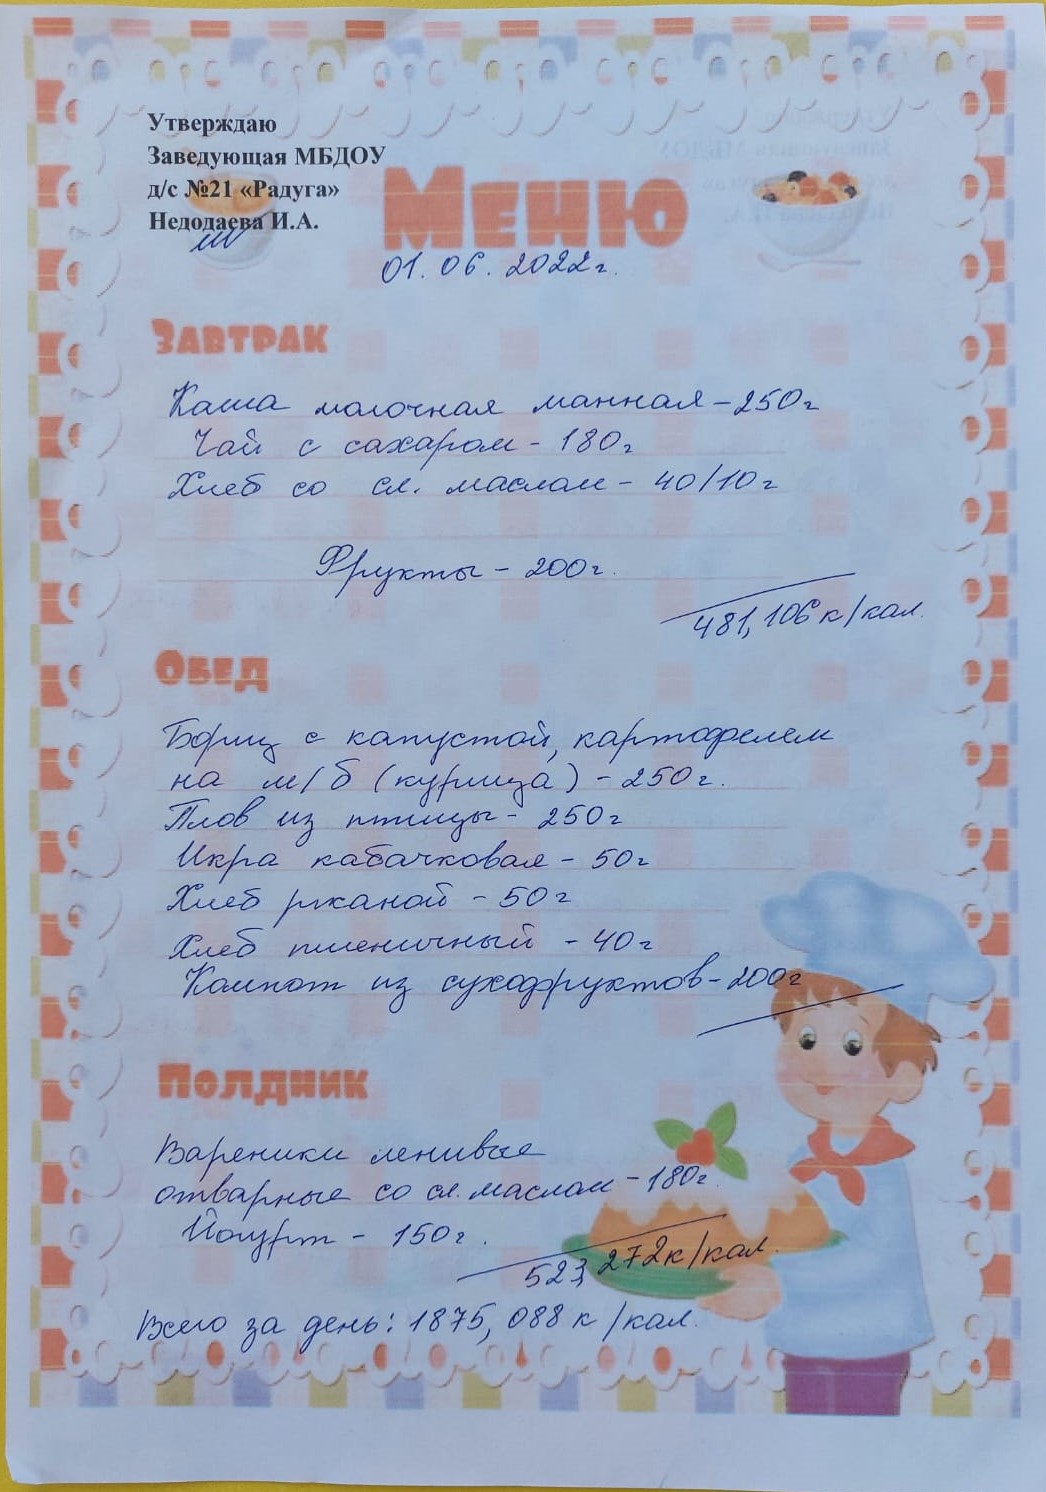 Утверждаю
Заведующая МБДОУ
д/с №21 «Радуга»
Недодаева И.А.
Меню
01.06.2022г.
Завтрак
Каша молочная манная - 250г
Чай с сахаром - 180г
Хлеб со сл. маслом - 40/10г
Фрукты - 200г.
481,106 к/кал.
Обед
Борщ с капустой, картофелем
на м/б (курица) - 250г.
Плов из птицы - 250г
Икра кабачковая - 50г
Хлеб ржаной - 50г
Хлеб пшеничный - 40г
Компот из сухофруктов - 200г
Полдник
Вареники ленивые
отварные со сл. маслом - 180г.
Йогурт - 150г.
523,272 к/кал.
Всего за день: 1875,088 к/кал.